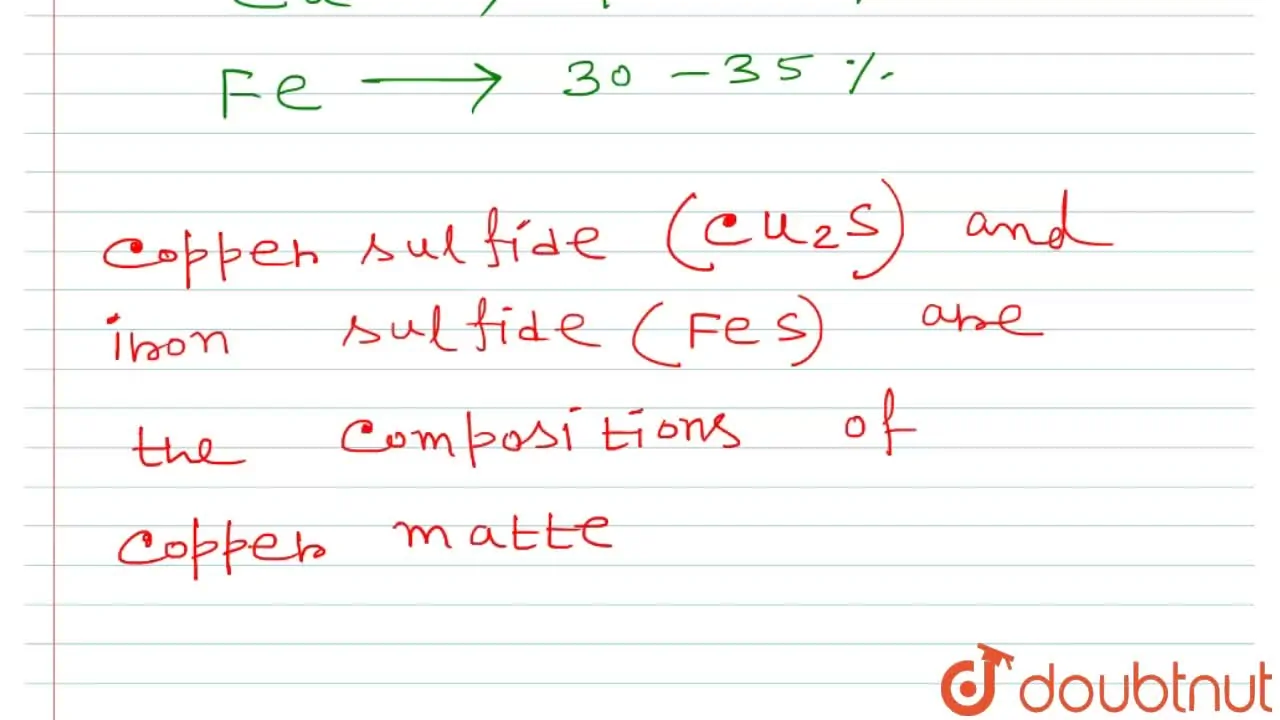 Fe → 30 - 35 %
Copper sulfide (Cu2S) and
iron sulfide (FeS) are
the compositions of
Copper matte
doubtnut